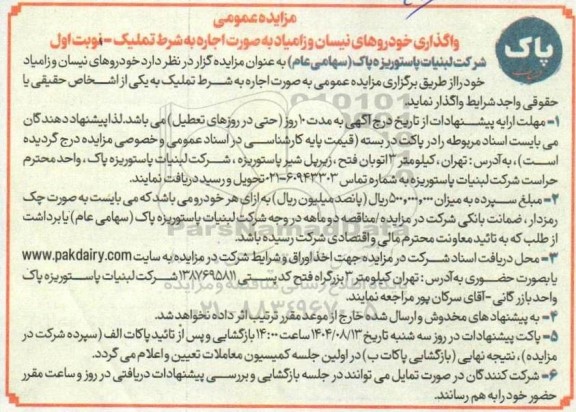 مزایده عمومی
واگذاری خودروهای نیسان و زامیاد به صورت اجاره به شرط تملیک - نوبت اول
پاک
شرکت لبنیات پاستوریزه پاک (سهامی عام) به عنوان مزایده گزار در نظر دارد خودروهای نیسان و زامیاد
خود را از طریق برگزاری مزایده عمومی به صورت اجاره به شرط تملیک به یکی از اشخاص حقیقی یا
حقوقی واجد شرایط واگذار نماید.
۱- مهلت ارایه پیشنهادات از تاریخ درج آگهی به مدت ۱۰ روز (حتی در روزهای تعطیل) می باشد. لذا پیشنهاد دهندگان
می بایست اسناد مربوطه را در پاکت در بسته (قیمت پایه کارشناسی در اسناد عمومی و خصوصی مزایده درج گردیده
است)، به آدرس: تهران، کیلومتر ۳ اتوبان فتح، زیر پل شیر پاستوریزه، شرکت لبنیات پاستوریزه پاک، واحد محترم
حراست شرکت لبنیات پاستوریزه به شماره تماس ۶۰۹۴۳۳۰۳-۰۲۱ تحویل و رسید دریافت نمایند.
۲- مبلغ سپرده به میزان ۵۰۰،۰۰۰،۰۰۰ ریال (پانصد میلیون ریال) به ازای هر خودرو می باشد که می بایست به صورت چک
رمزدار، ضمانت بانکی شرکت در مزایده/مناقصه دو ماهه در وجه شرکت لبنیات پاستوریزه پاک (سهامی عام) یا برداشت
از طلب که به تائید معاونت محترم مالی و اقتصادی شرکت رسیده باشد.
۳- محل دریافت اسناد شرکت در مزایده جهت اخذ اوراق و شرایط شرکت در مزایده به سایت www.pakdairy.com
یا بصورت حضوری به آدرس: تهران کیلومتر ۳ بزرگراه فتح کد پستی ۱۳۸۷۶۹۵۸۱۱ شرکت لبنیات پاستوریزه پاک
واحد بازرگانی - آقای سرکان پور مراجعه نمایند.
۴- به پیشنهاد های مخدوش و ارسال شده خارج از موعد مقرر ترتیب اثر داده نخواهد شد.
۵- پاکت پیشنهادات در روز سه شنبه تاریخ ۱۴۰۴/۰۸/۱۳ ساعت ۱۴:۰۰ بازگشایی و پس از تائید پاکات الف (سپرده شرکت در
مزایده)، نتیجه نهایی (بازگشایی پاکات ب) در اولین جلسه کمیسیون معاملات تعیین و اعلام می گردد.
۶- شرکت کنندگان در صورت تمایل می توانند در جلسه بازگشایی و بررسی پیشنهادات دریافتی در روز و ساعت مقرر
حضور خود را به هم رسانند.